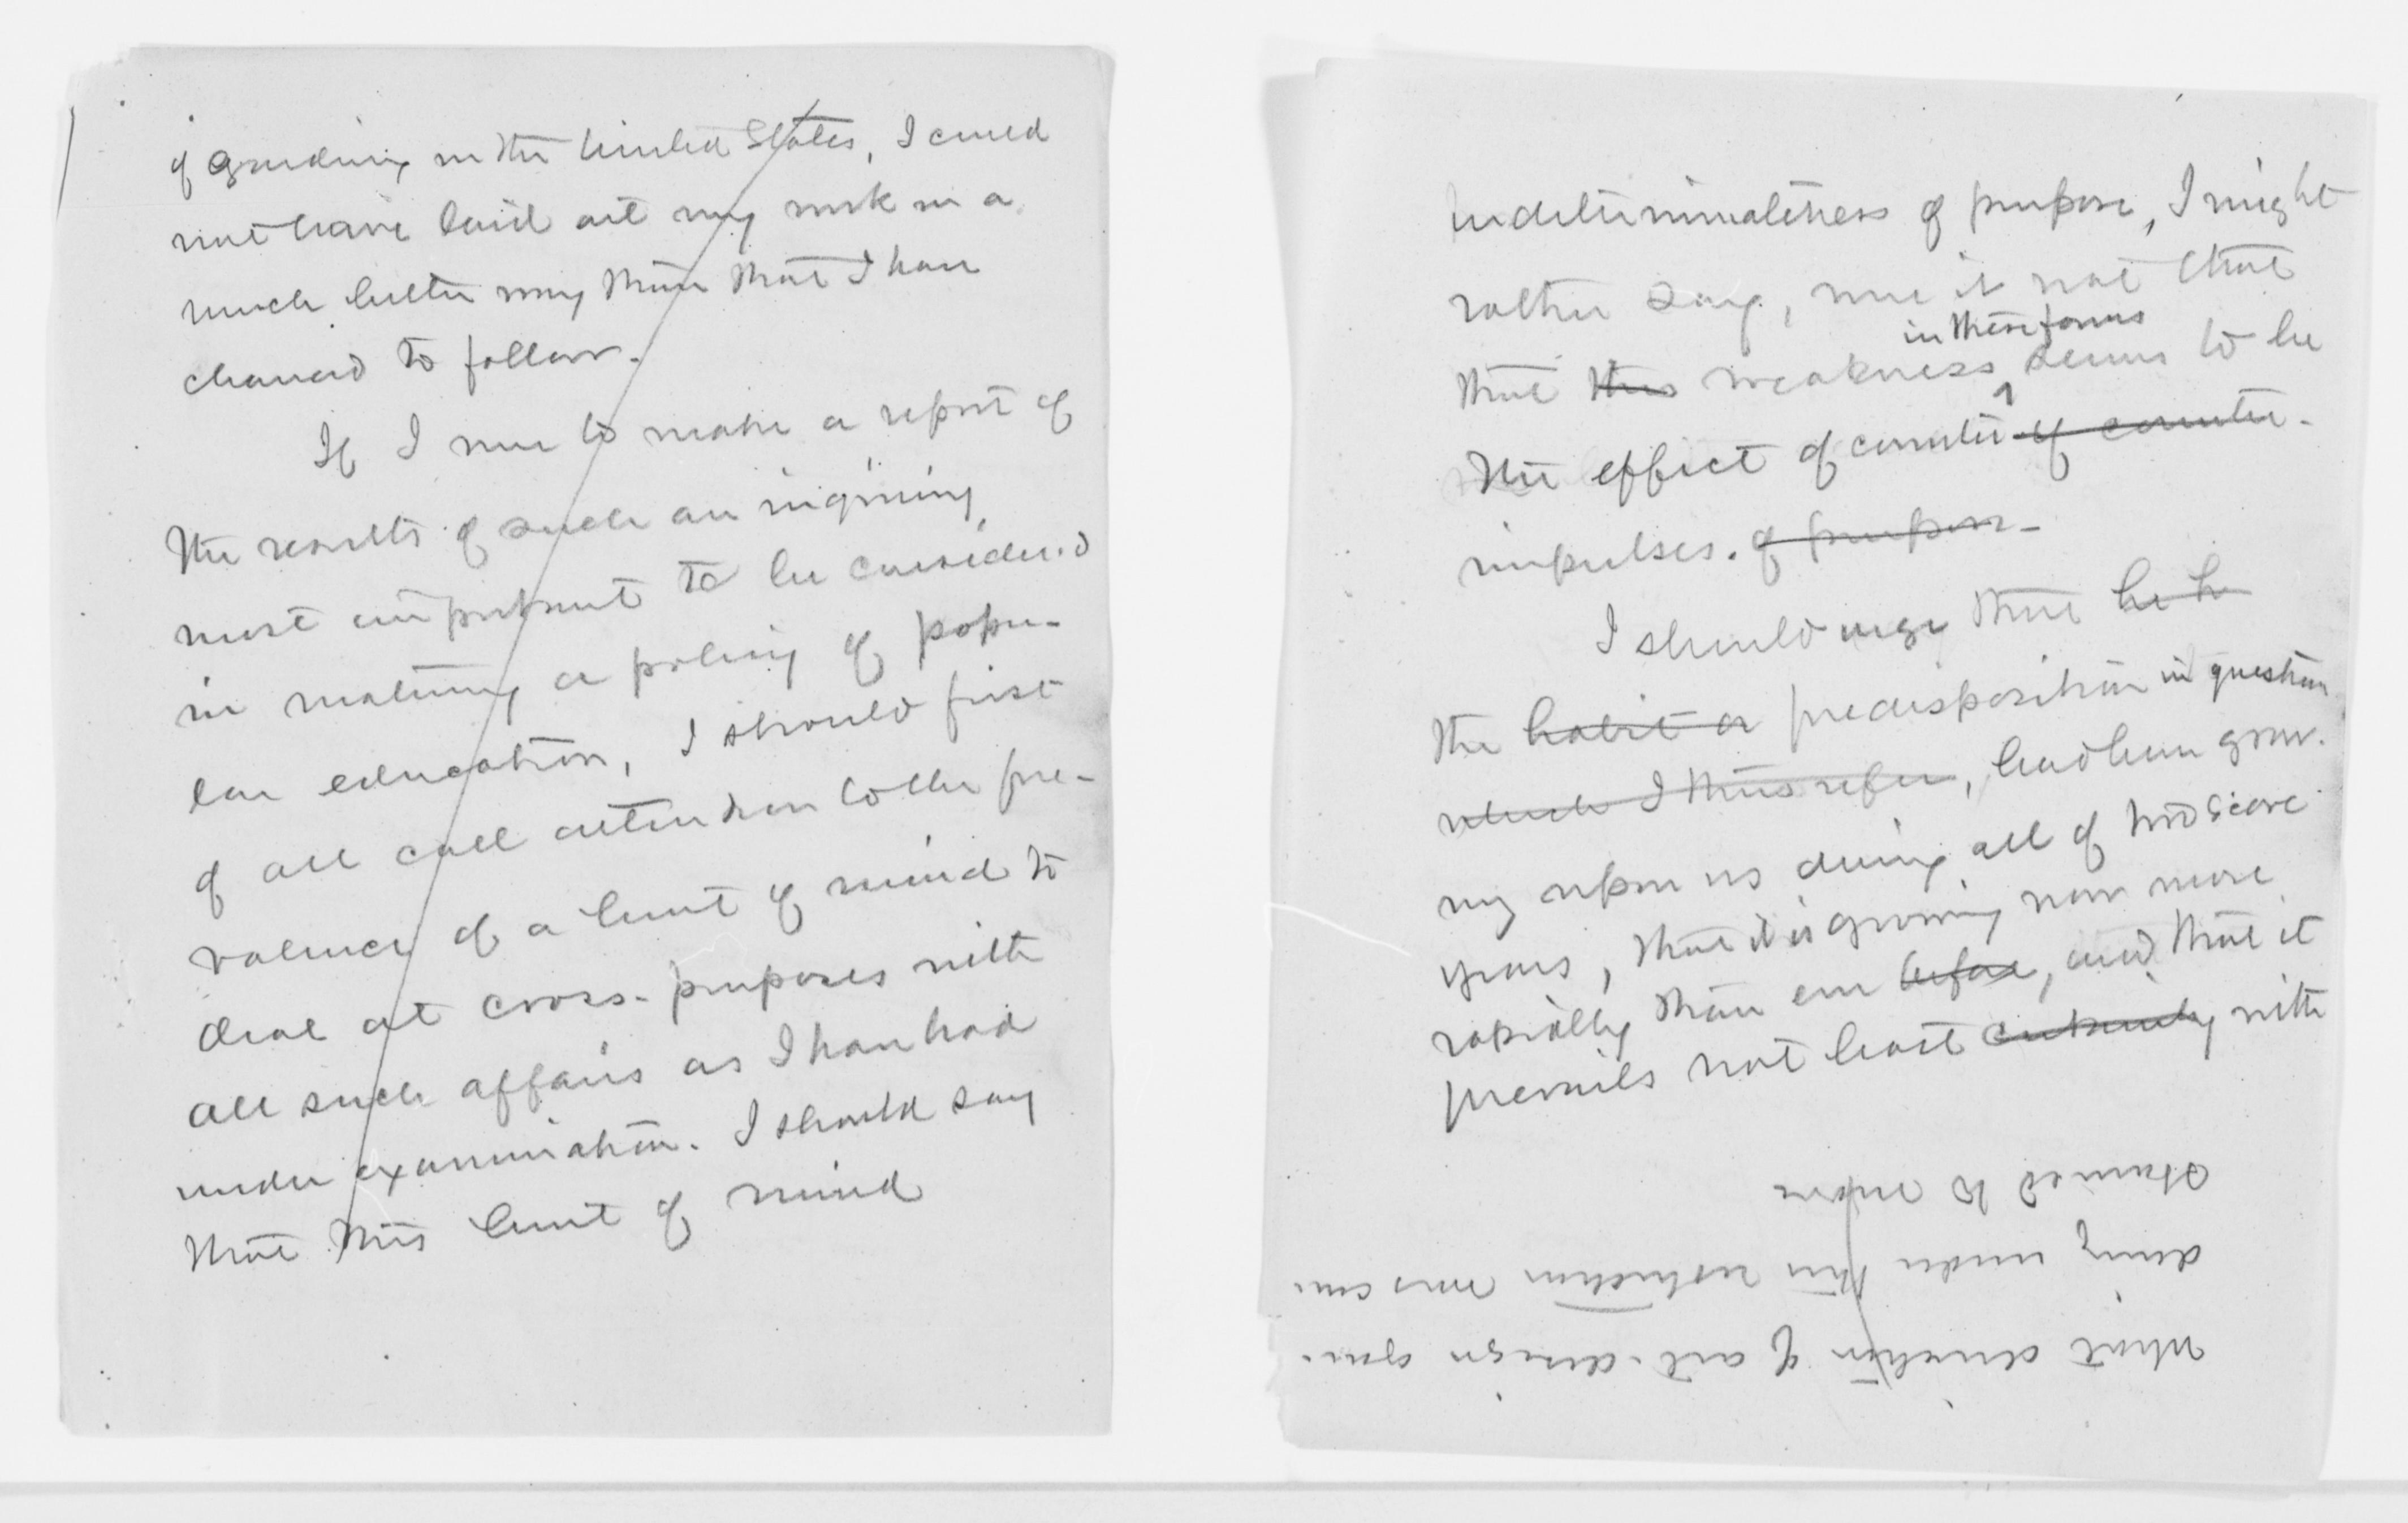 of gardening in the United States, I could
not have laid out my work in a
much better way than that I have
chanced to follow.
If I were to make a report of
the results of such an inquiry
most important to be considered
in maturing a policy of popu-
lar education, I should first
of all call attention to the pre-
valence of a bent of mind to
deal at cross-purposes with
all such affairs as I have had
under examination. I should say
that this bent of mind
indeterminateness of purpose, I might
rather say, were it not that
in these forms
that this weakness seems to be
the effect of counter of counter-
impulses. of purpose-
I should urge that he h
the habit or predisposition in question
which I thus refer, had been grow-
ing upon us during all of two score
years, that it is growing now more
rapidly than ever before, and that it
prevails not least with
what of art-design gar-
dening under this restriction was